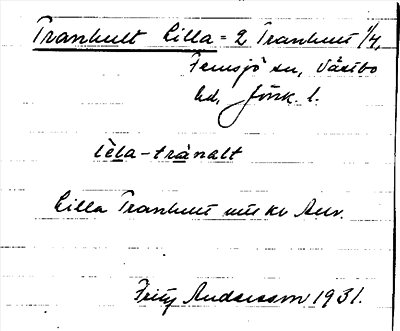 Tranhult Lilla = 2 Tranhult 1/4,
Femsjö sn, Västbo
hd, Jönk. l.
lèla-trànalt
Lilla Tranhult
Fritz Andersson 1931.